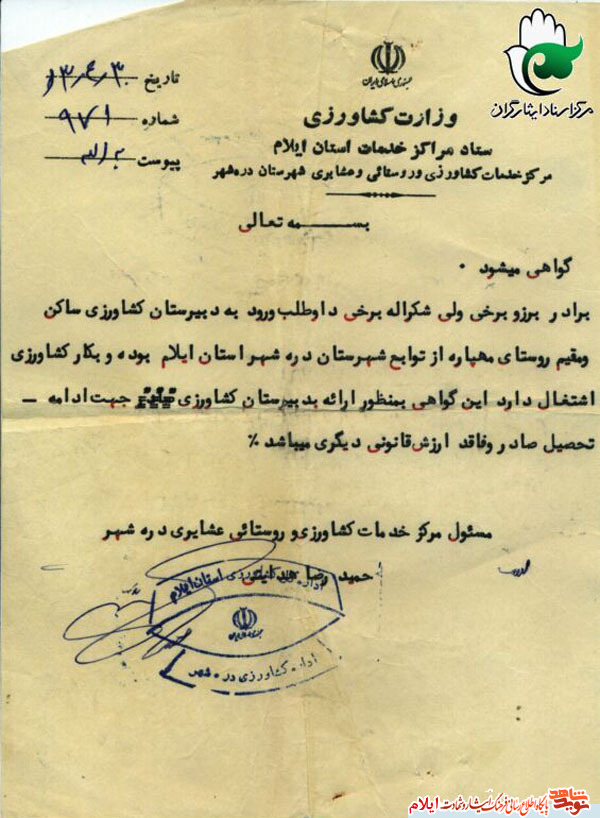 جمهوری اسلامی ایران
مرکز اسناد ایثارگران
تاریخ
شماره ۹۷۱
پیوست
وزارت کشاورزی
ستاد مراکز خدمات استان ایلام
مرکز خدمات کشاورزی و روستائی و عشایری شهرستان دره شهر
بسمه تعالی
گواهی میشود .
برادر برزو برخی ولی شکراله برخی داوطلب ورود به دبیرستان کشاورزی ساکن
ومقیم روستای مهپاره از توابع شهرستان دره شهر استان ایلام بوده و بکار کشاورزی
اشتغال دارد این گواهی بمنظور ارائه بدبیرستان کشاورزی جهت ادامه _
تحصیل صادر وفاقد ارزش قانونی دیگری میباشد ٪
مسئول مرکز خدمات کشاورزی و روستائی عشایری دره شهر
حمید رضا
کشاورزی استان ایلام
اداره کشاورزی دره شهر
نوید شاهد
پایگاه اطلاع رسانی فرهنگ ایثار و شهادت ایلام